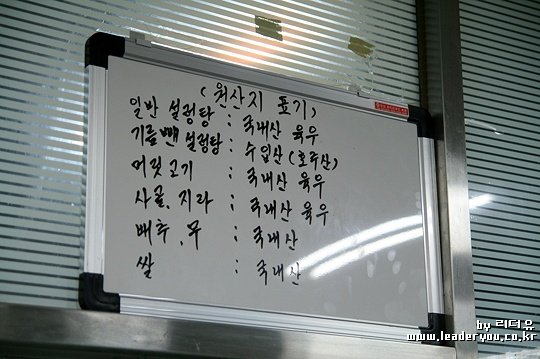 (원산지 표기)
일반 설렁탕 : 국내산 육우
기름뺀 설렁탕 : 수입산(호주산)
머릿고기 : 국내산 육우
사골, 지라 : 국내산 육우
배추, 무 : 국내산
쌀 : 국내산
by 리더유
www.leaderyou.co.kr